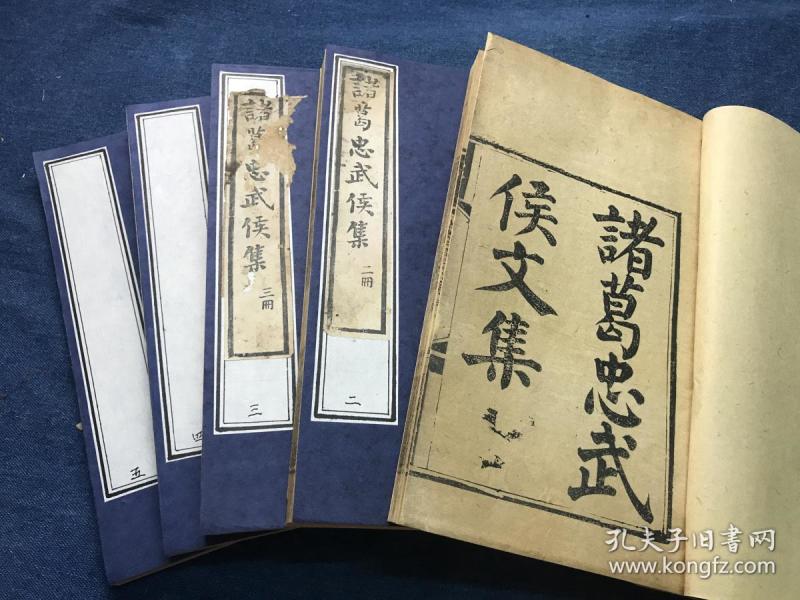 諸葛忠武
侯文集
諸葛忠武侯集
二冊
二
諸葛忠武侯集
三冊
三
四
五
孔夫子旧書网
www.kongfz.com